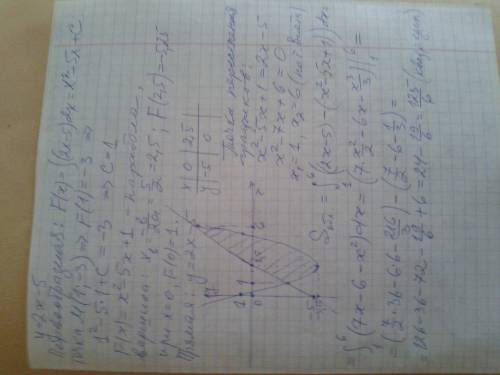 y=2x-5
Первообразная: F(x)=∫(2x-5)dx=x²-5x+C
точка M(1;-3) ⇒ F(1)=-3 ⇒
1²-5·1+C=-3 ⇒ C=1
F(x)=x²-5x+1 - парабола,
вершина: x₀=-b/2a=5/2=2,5; F(2,5)=-5,25
при x=0, F(0)=1.
Прямая: y=2x-5
x | 0 | 2,5
y | -5 | 0
Точки пересечения
графиков:
x²-5x+1=2x-5
x²-7x+6=0
x₁=1, x₂=6
S=∫₁⁶((2x-5)-(x²-5x+1))dx=
=∫₁⁶(7x-6-x²)dx=(7x²/2-6x-x³/3)|₁⁶=
=(7/2·36-6·6-216/3)-(7/2-6-1/3)=
=126-36-72-19/6+6=24-19/6=125/6